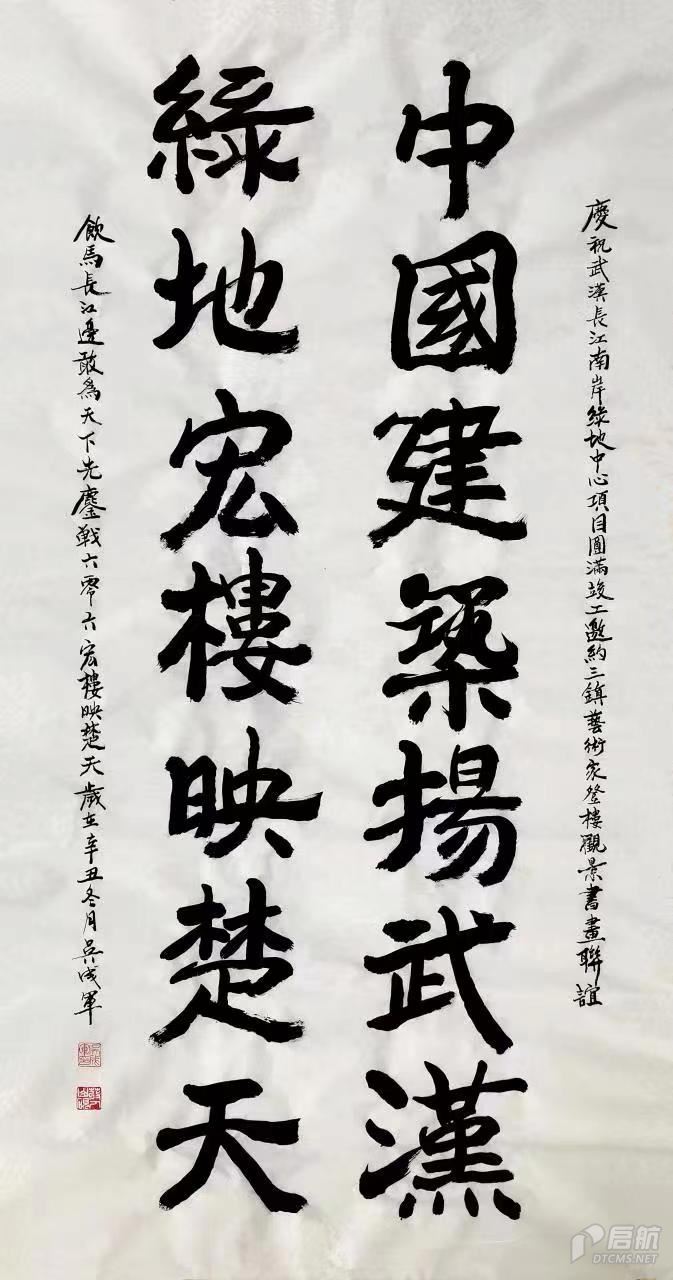 慶祝武漢長江南岸綠地中心項目圓滿竣工邀約三鎮藝術家登樓觀景書畫聯誼
中國建築揚武漢
綠地宏樓映楚天
飲馬長江邊敢為天下先鏖戰六零六宏樓映楚天歲在辛丑冬月吳成軍
启航
DTCMS.NET